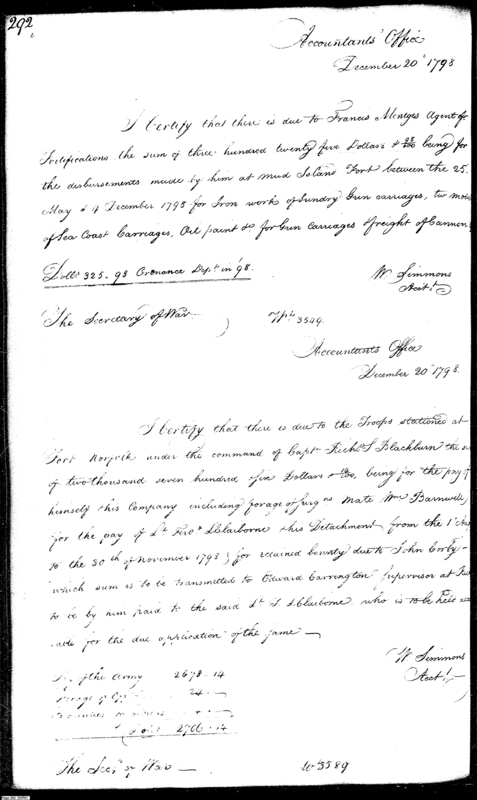 292,
Accountants' Office
December 20th 1798
I Certify that there is due to Francis Mentges Agent for
Fortifications the sum of three hundred twenty five Dollars & 98/100 being for
the disbursements made by him at Mud Island Fort between the 25.
May & 4 December 1798 for Iron works of Sundry Gun carriages, two
of Sea Coast Carriages, Oil paint &c for Gun Carriages & freight of Cannon
Dolls 325.98 Ordnance Dept in 98.
W Simmons
Acct
The Secretary of War
Wt 3509.
Accountants Office
December 20th 1798.
I Certify that there is due to the Troops stationed at
Fort Norfolk under the command of Capt. Richd S Blackburn the
of two thousand seven hundred & six Dollars being for the pay of
himself & his Company including forage of Surgns Mate Wm Barnwell,
for the pay of Lt Ferds L Claiborne & his Detachment from the 1st
to the 30th of November 1798 & for retained bounty due to John
which sum is to be transmitted to Edward Carrington Supervisor at
to be by him paid to the said Lt F. L Claiborne who is to be held
able for the due application of the same
W Simmons
Acct
of the Army 2678.14
forage 24
2706.14
The Secy of War
W 3589